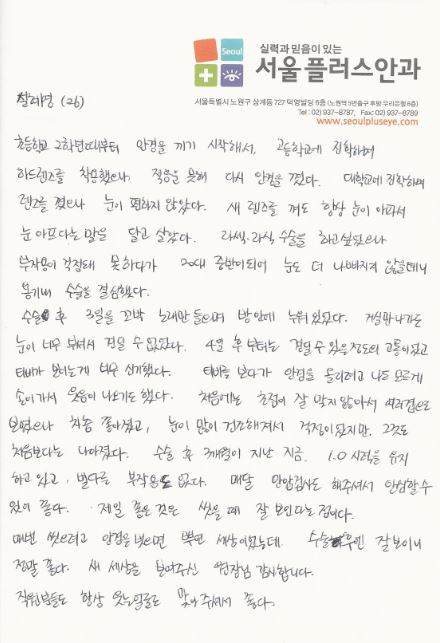 Seoul
실력과 믿음이 있는
서울플러스안과
서울특별시 노원구 상계동 727 덕영빌딩 6층 (노원역 5번출구 후방 우리은행 6층)
Tel : 02) 937-8787, Fax: 02) 937-8789
www.seoulpluseye.com
(26)
초등학교 2학년때부터 안경을 끼기 시작해서, 고등학교에 진학하며
하드렌즈를 착용했으나 적응을 못해 다시 안경을 꼈다. 대학교에 진학하며
렌즈를 꼈으나 눈이 편하지 않았다. 새 렌즈를 껴도 항상 눈이 아파서
눈 아프다는 말을 달고 살았다. 라섹, 라식 수술을 하고싶었으나
부작용이 걱정돼 못하다가 20대 중반이되어 눈도 더 나빠지지 않을테니
용기내 수술을 결심했다.
수술 후 3일을 꼬박 노래만 들으며 방안에 누워있었다. 거실만 나가도
눈이 너무 부셔서 견딜 수 없었다. 4일 후 부터는 견딜 수 있을정도의 고통이었고
티비가 보이는게 너무 신기했다. 티비를 보다가 안경을 올리려고 나도 모르게
손이가서 웃음이 나오기도 했다. 처음에는 초점이 잘 맞지 않아서
차츰 좋아졌고, 눈이 많이 건조해져서 걱정이었지만, 그것도
처음보다는 나아졌다. 수술 후 3개월이 지난 지금. 1.0 시력을 유지
하고 있고, 별다른 부작용도 없다. 매달 안압검사도 해주셔서 안심할 수
있어 좋다. 제일 좋은 것은 씻을 때 잘 보인다는 점이다.
매번 씻으려고 안경을 벗으면 뿌연 세상이었는데. 수술후엔 잘 보이니
정말 좋다. 새 세상을 보여주신 원장님 감사합니다.
직원분들도 항상 웃는얼굴로 맞아주셔서 좋다.